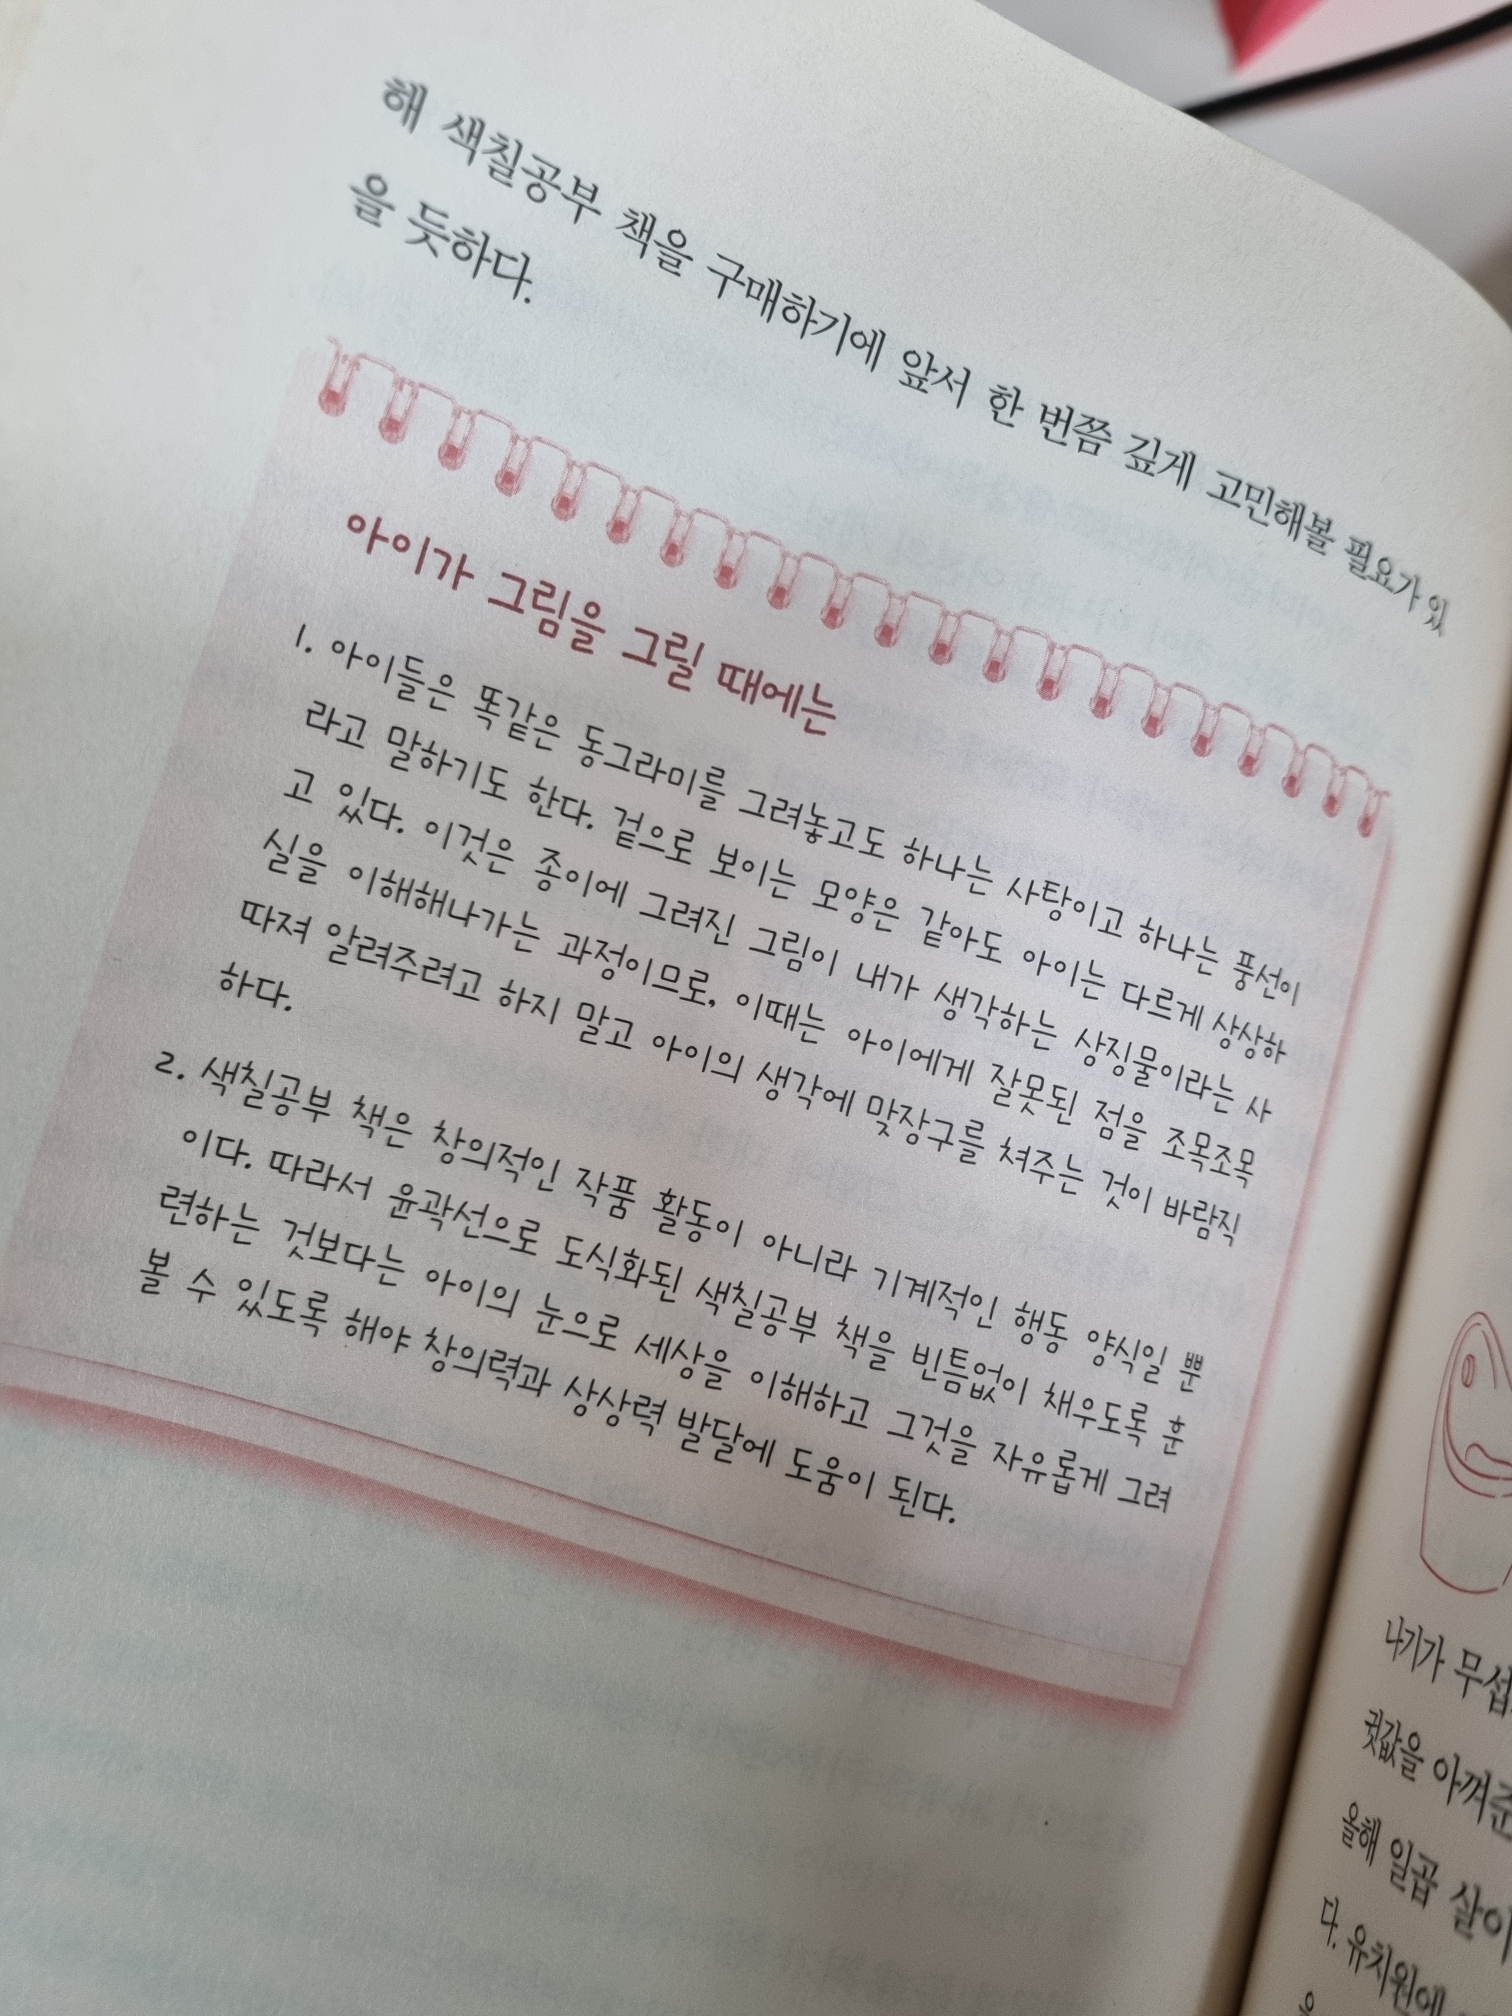 해 색칠공부 책을 구매하기에 앞서 한 번쯤 깊게 고민해볼 필요가 있
을 듯하다.
아이가 그림을 그릴 때에는
1. 아이들은 똑같은 동그라미를 그려놓고도 하나는 사탕이고 하나는 풍선이
라고 말하기도 한다. 겉으로 보이는 모양은 같아도 아이는 다르게 상상하
고 있다. 이것은 종이에 그려진 그림이 내가 생각하는 상징물이라는 사
실을 이해해나가는 과정이므로, 이때는 아이에게 잘못된 점을 조목조목
따져 알려주려고 하지 말고 아이의 생각에 맞장구를 쳐주는 것이 바람직
하다.
2. 색칠공부 책은 창의적인 작품 활동이 아니라 기계적인 행동 양식일 뿐
이다. 따라서 윤곽선으로 도식화된 색칠공부 책을 빈틈없이 채우도록 훈
련하는 것보다는 아이의 눈으로 세상을 이해하고 그것을 자유롭게 그려
볼 수 있도록 해야 창의력과 상상력 발달에 도움이 된다.
나기가
귓값을 아껴준
올해 일곱 살이
다. 유치원에